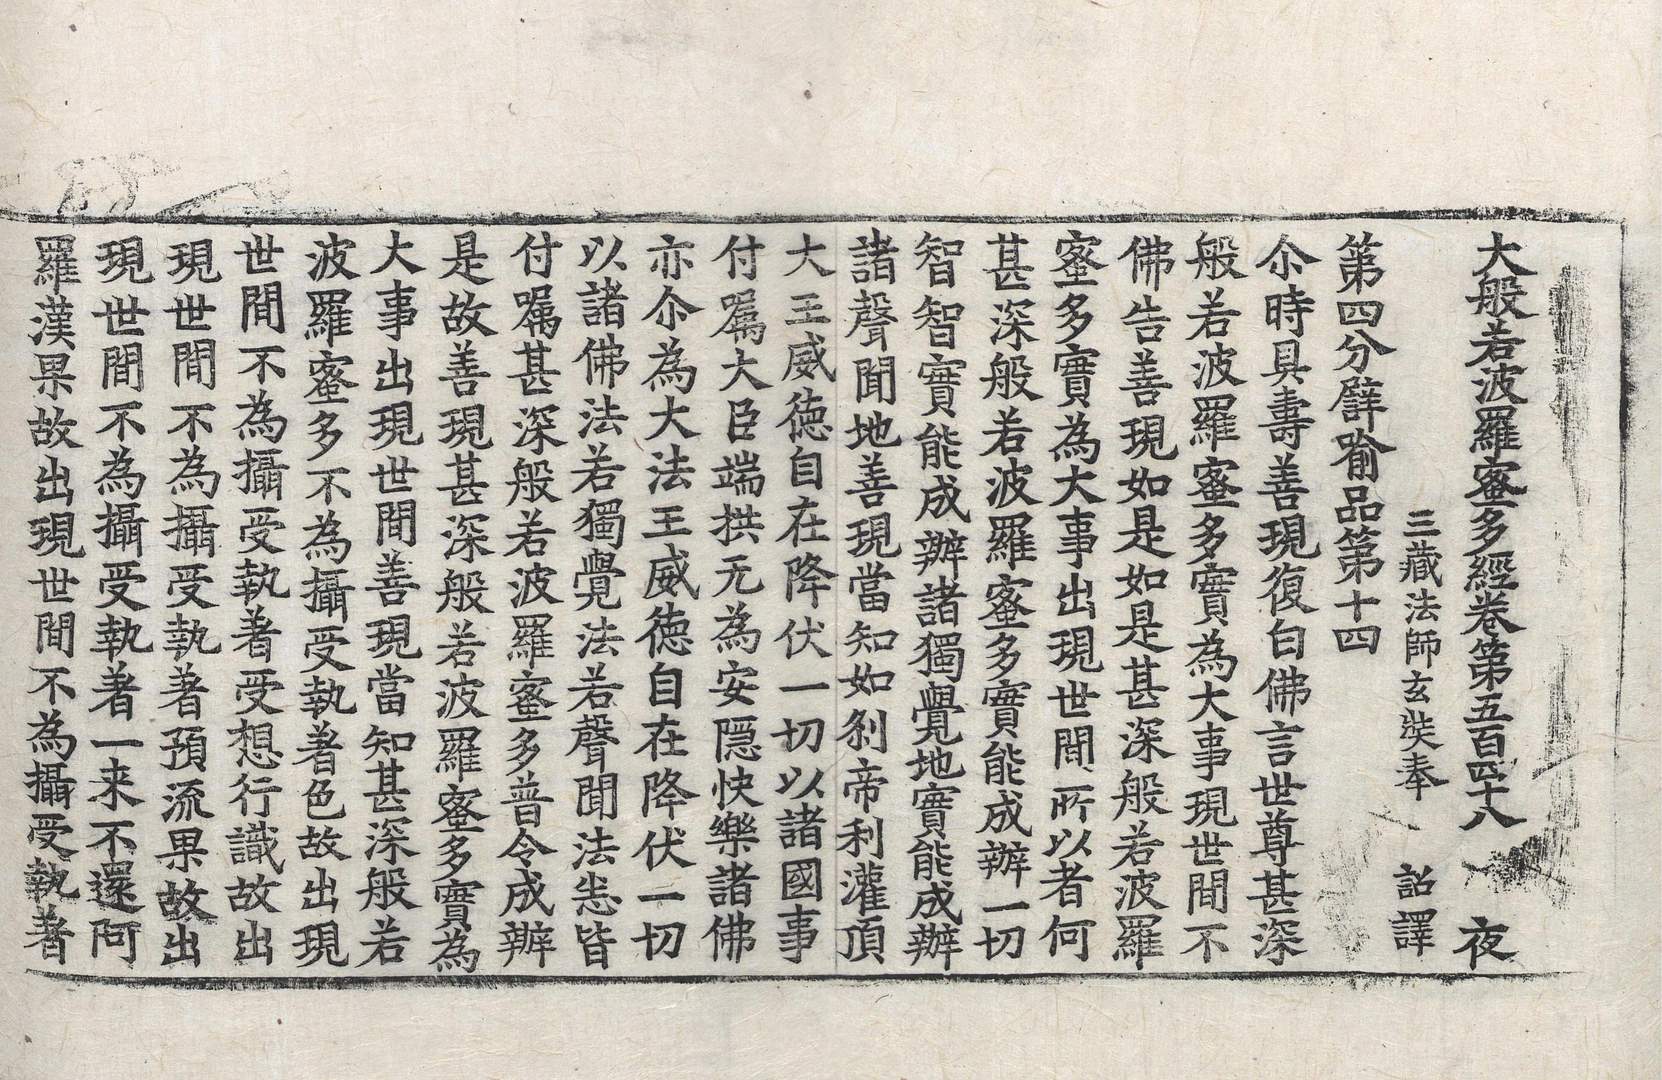 大般若波羅蜜多經卷第五百四十八　夜
三藏法師玄奘奉　詔譯
第四分譬喻品第十四
尒時具壽善現復白佛言世尊甚深
般若波羅蜜多實為大事現世間不
佛告善現如是如是甚深般若波羅
蜜多實為大事出現世間所以者何
甚深般若波羅蜜多實能成辦一切
智智實能成辦諸獨覺地實能成辦
諸聲聞地善現當知如剎帝利灌頂
大王威德自在降伏一切以諸國事
付囑大臣端拱无為安隱快樂諸佛
亦尒為大法王威德自在降伏一切
以諸佛法若獨覺法若聲聞法悉皆
付囑甚深般若波羅蜜多普令成辦
是故善現甚深般若波羅蜜多實為
大事出現世間善現當知甚深般若
波羅蜜多不為攝受執著色故出現
世間不為攝受執著受想行識故出
現世間不為攝受執著預流果故出
現世間不為攝受執著一来不還阿
羅漢果故出現世間不為攝受執著